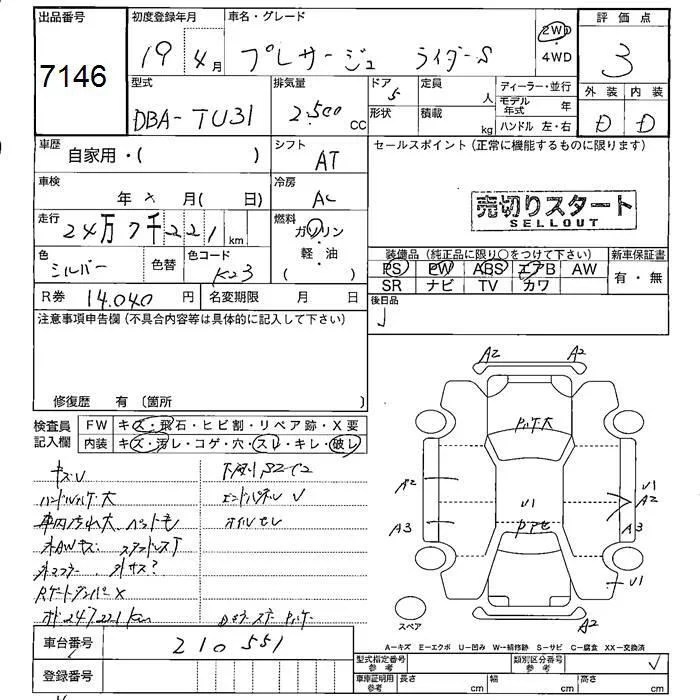 出品番号
7146
初度登録年月
19 4月
車名・グレード
プレサージュ ライダーS
2WD
4WD
評価点
3
外装 内装
D D
型式
DBA-TU31
排気量
2.500 CC
ドア
5
定員
人
形状
積載
kg
ディーラー・並行
モデル年式 年
ハンドル 左・右
車歴
自家用・( )
シフト
AT
車検
年 × 月( 日)
冷房
AC
走行
24万7千221 km
燃料
ガソリン
・
軽・油
( )
色
シルバー
色替
色コード
K23
R券 14.040 円
名変期限 月 日
セールスポイント(正常に機能するものに限ります)
売切りスタート
SELLOUT
装備品(純正品に限り○をつけて下さい)
新車保証書
PS PW ABS エアB AW
有・無
SR ナビ TV カワ
後日品
注意事項申告欄(不具合内容等は具体的に記入して下さい)
修復歴 有 〔箇所 〕
検査員
記入欄
FW キズ・飛石・ヒビ割・リペア跡・X要
内装 キズ・汚レ・コゲ・穴・スレ・キレ・破レ
キズU
エンドパネル U
オイルモレ
外AWキズ
外マフラー 外サス?
Rゲートダンパー×
247221km
A2 A2
A2
A3
U1
U1
A2
A3
U1
A2
スペア
A-キズ E-エクボ U-凹み W-補修跡 S-サビ C-腐食 XX-交換済
車台番号
210551
登録番号
型式指定番号
参考
類別区分番号
参考
車庫証明用
参考
長さ cm
幅 cm
高さ cm